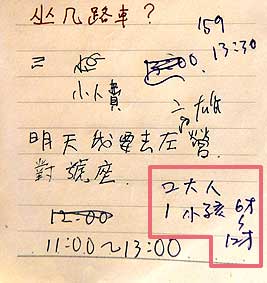 坐几路車？
159
13:30
13:00
小人貴
高雄
明天我要去左營
對號座.
2大人
1 小孩 6才
12才
12:00
11:00~13:00